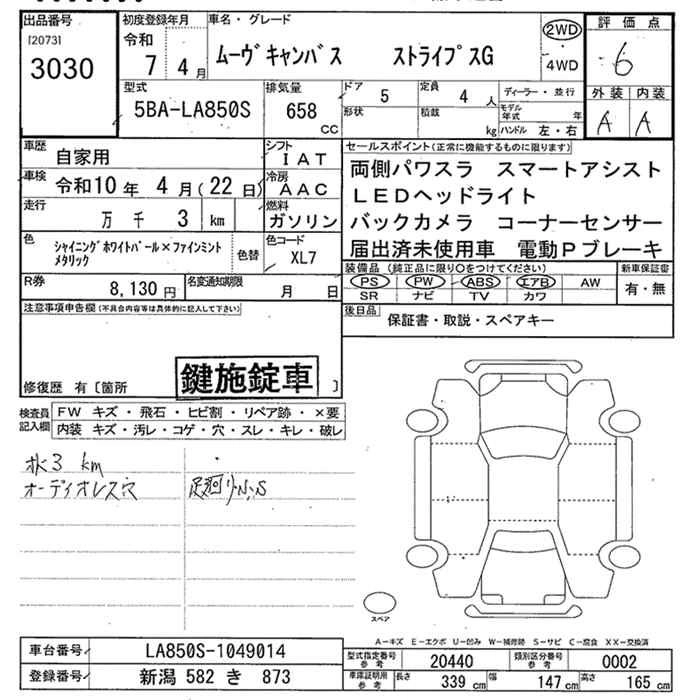 出品番号
[2073]
3030
初度登録年月
令和
7 4月
車名・グレード
ムーヴキャンバス ストライプスG
2WD
4WD
評価点
6
外装 内装
A A
型式
5BA-LA850S
排気量
658 cc
ドア 5
定員 4 人
形状
積載 kg
ディーラー・並行
モデル年式 年
ハンドル 左・右
車歴
自家用
シフト
IAT
車検 令和10年 4月(22日)
冷房
AAC
走行
万 千 3 km
燃料
ガソリン
色 シャイニングホワイトパール×ファインミントメタリック
色替
色コード
XL7
セールスポイント(正常に機能するものに限ります)
両側パワスラ スマートアシスト
LEDヘッドライト
バックカメラ コーナーセンサー
届出済未使用車 電動Pブレーキ
R券
8,130円
名変通知期限
月 日
装備品(純正品に限り○をつけてください)
PS PW ABS エアB AW
SR ナビ TV カワ
新車保証書
有・無
注意事項申告欄(不具合内容等は具体的に記入して下さい)
後日品 保証書・取説・スペアキー
鍵施錠車
修復歴 有〔箇所 〕
検査員記入欄
FW キズ・飛石・ヒビ割・リペア跡・×要
内装 キズ・汚レ・コゲ・穴・スレ・キレ・破レ
3 km
オーディオレス穴
足廻り小サビ
スペア
A-キズ E-エクボ U-凹み W-補修跡 S-サビ C-腐食 XX-交換済
車台番号 LA850S-1049014
登録番号 新潟 582 き 873
型式指定番号 参考 20440
類別区分番号 参考 0002
車庫証明用 参考 長さ 339 cm 幅 147 cm 高さ 165 cm